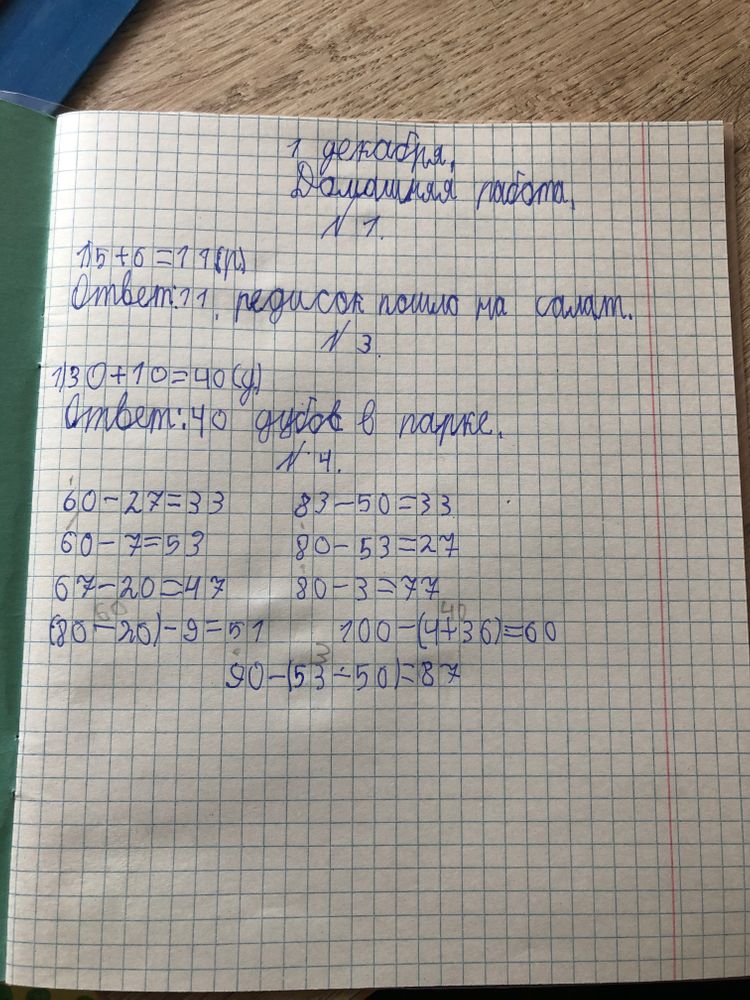 1 декабря.
Домашняя работа.
N 1.
1)5+6=11(р)
Ответ:11. редисок пошло на салат.
N 3.
1)30+10=40(д)
Ответ:40 дубов в парке.
N 4.
60-27=33 83-50=33
60-7=53 80-53=27
67-20=47 80-3=77
60 40
(80-20)-9=51 100-(4+36)=60
3
90-(53-50)=87